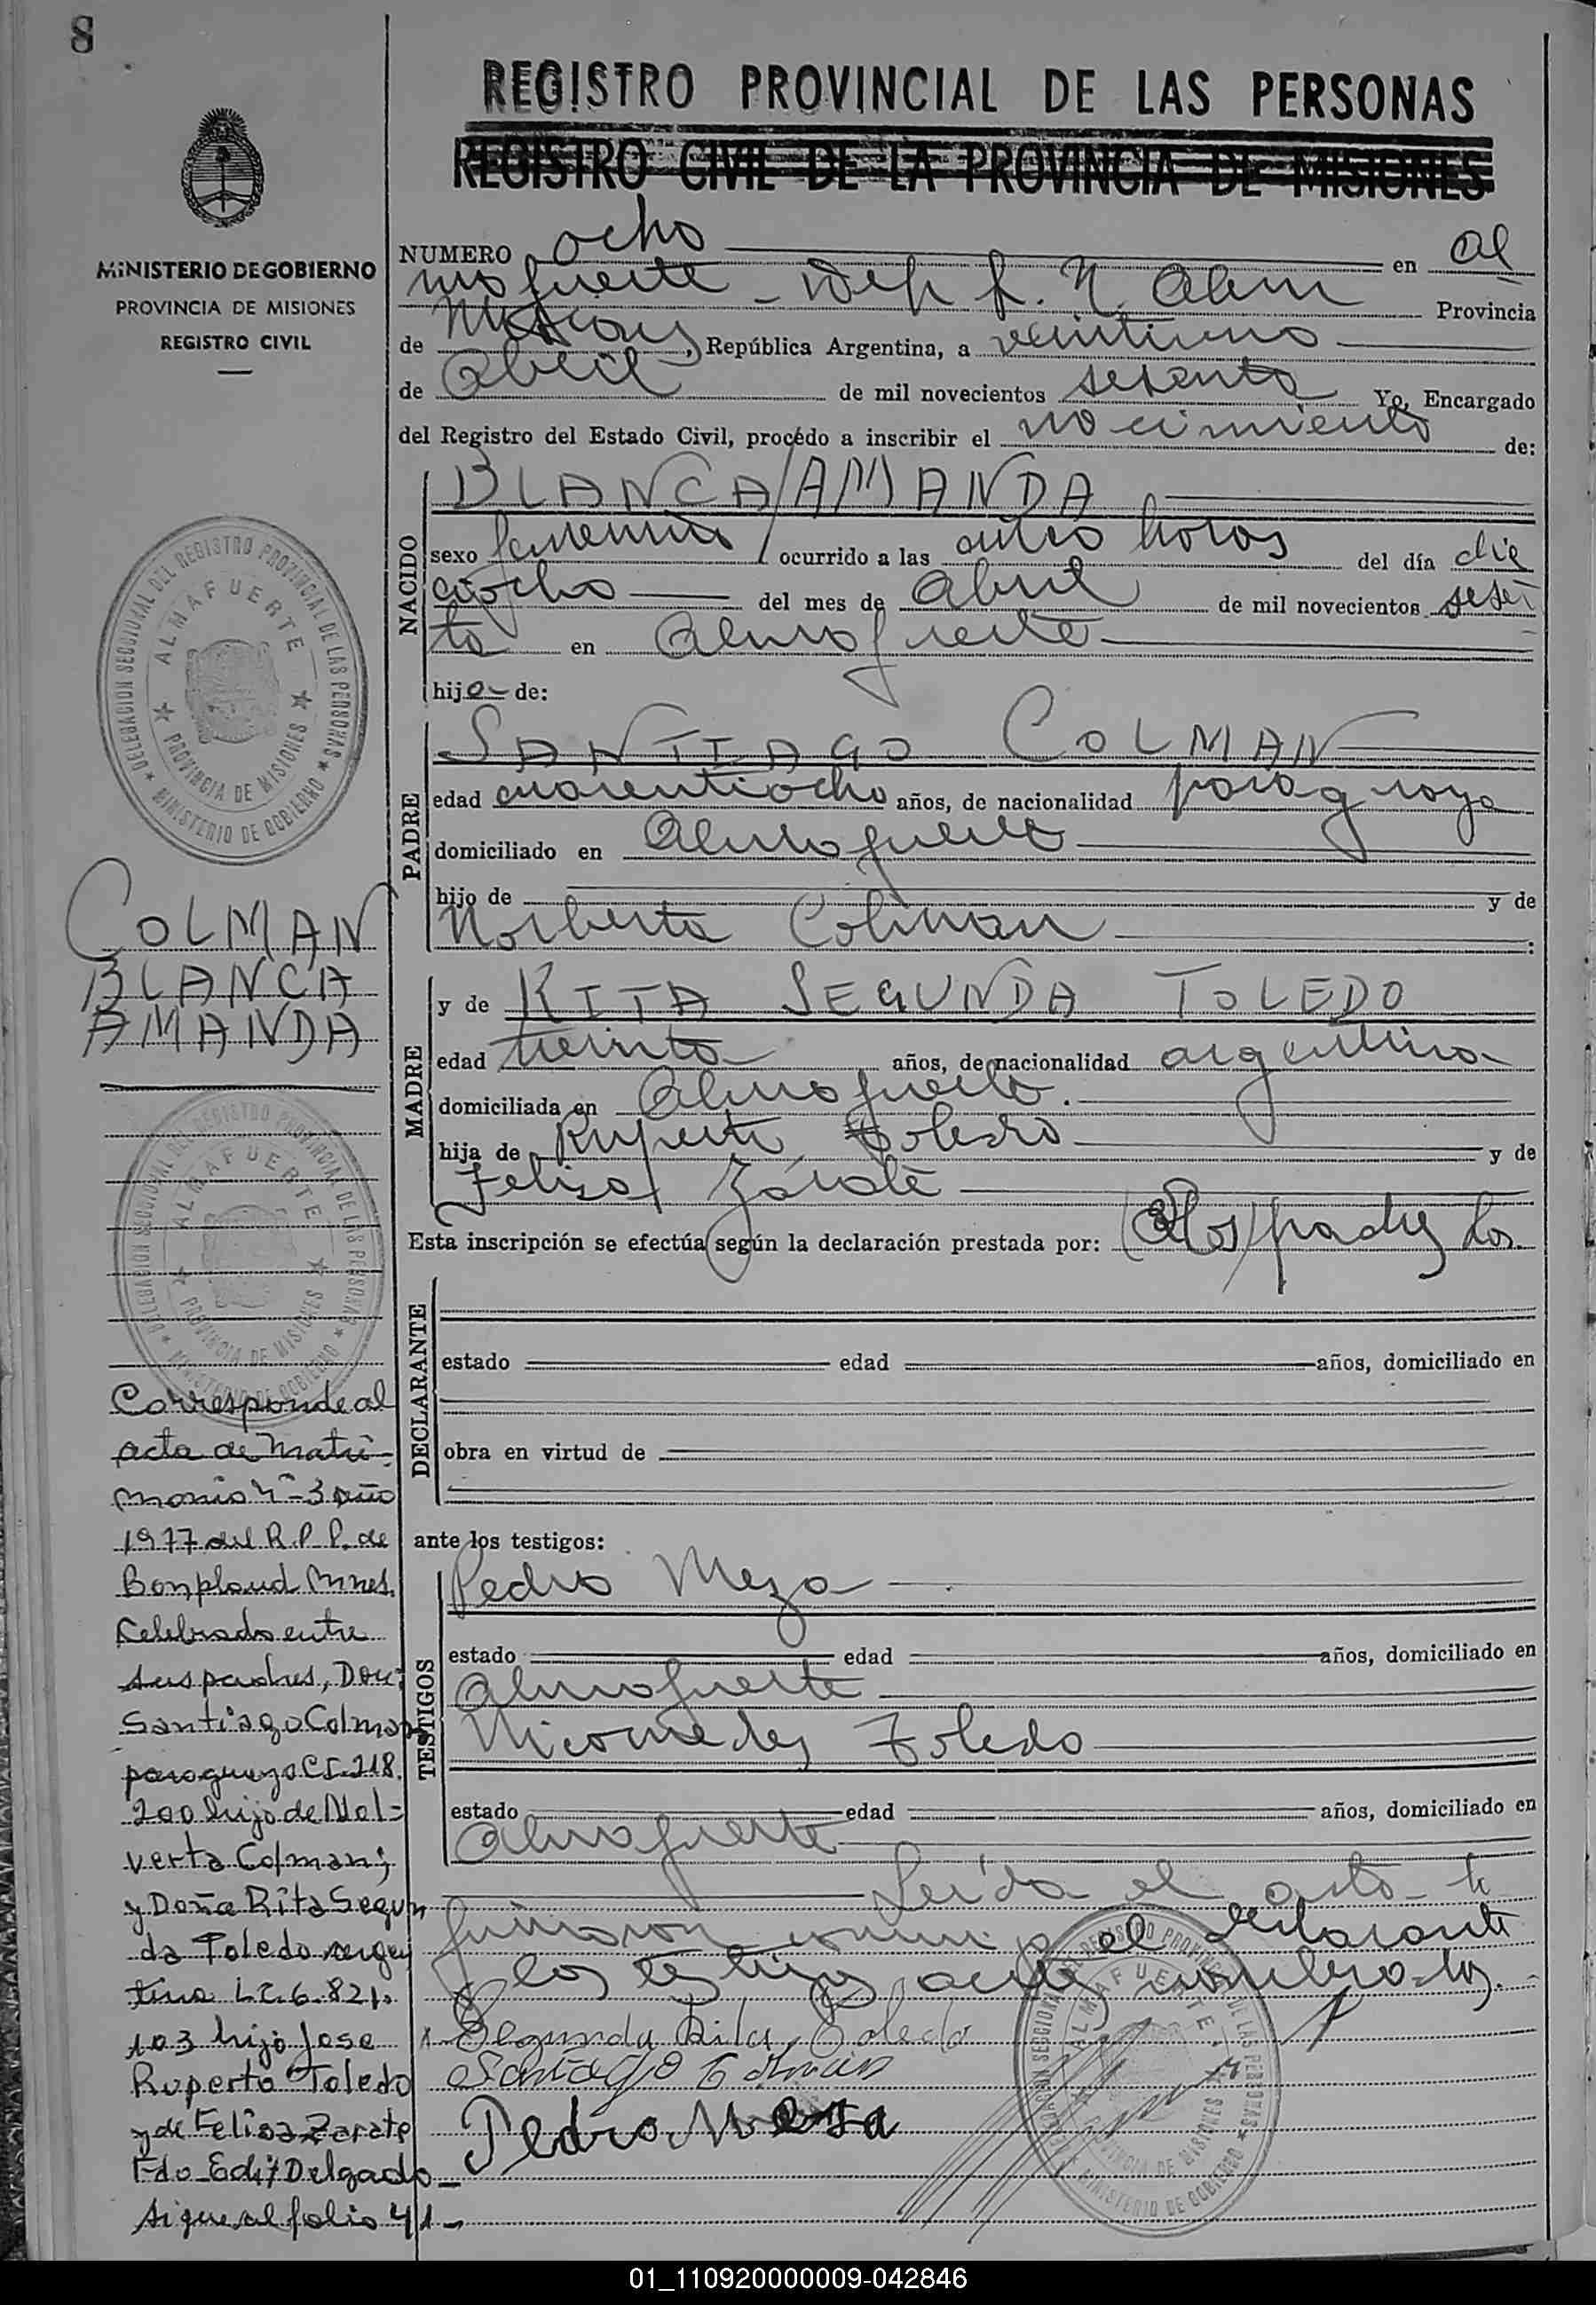 8
REGISTRO PROVINCIAL DE LAS PERSONAS
REGISTRO CIVIL DE LA PROVINCIA DE MISIONES
MINISTERIO DE GOBIERNO
PROVINCIA DE MISIONES
REGISTRO CIVIL
NUMERO ocho en Al
mafuerte - Dep L. N. Alem Provincia
de Misiones, República Argentina, a veintiuno
de Abril de mil novecientos sesenta Yo, Encargado
del Registro del Estado Civil, procedo a inscribir el nacimiento de:
NACIDO
BLANCA AMANDA
sexo femenino ocurrido a las cinco horas del día die
ciocho del mes de Abril de mil novecientos sesen
ta en Almafuerte
hija de:
PADRE
SANTIAGO COLMAN
edad cuarentiocho años, de nacionalidad paraguaya
domiciliado en Almafuerte
hijo de y de
Norberta Colman :
MADRE
y de RITA SEGUNDA TOLEDO
edad treinta años, de nacionalidad argentina
domiciliada en Almafuerte.
hija de Ruperto Toledo y de
Felisa Zárate
Esta inscripción se efectúa según la declaración prestada por: los padres
DECLARANTE
estado edad años, domiciliado en
obra en virtud de
ante los testigos:
TESTIGOS
Pedro Meza
estado edad años, domiciliado en
Almafuerte
Nicomedes Toledo
estado edad años, domiciliado en
Almafuerte
Leída el acta la
firmaron conmigo el declarante
y los testigos antes nombrados.
Segunda Rita Toledo
Santiago Colman
Pedro Meza
DELEGACION SECCIONAL DEL REGISTRO PROVINCIAL DE LAS PERSONAS
MINISTERIO DE GOBIERNO
ALMAFUERTE
PROVINCIA DE MISIONES
COLMAN
BLANCA
AMANDA
DELEGACION SECCIONAL DEL REGISTRO PROVINCIAL DE LAS PERSONAS
MINISTERIO DE GOBIERNO
ALMAFUERTE
PROVINCIA DE MISIONES
Corresponde al
acta de Matri-
monio Nº-3 año
1977 del R.P.P. de
Bonpland Mnes.
Celebrado entre
sus padres, Don:
Santiago Colman
paraguayo C.I. 218.
200 hijo de Nol=
verta Colman;
y Doña Rita Segun
da Toledo argen
tina L.C. 6.821.
103 hija Jose
Ruperto Toledo
y de Felisa Zarate
Fdo Edit Delgado-
sigue al folio 41-
DELEGACION SECCIONAL DEL REGISTRO PROVINCIAL DE LAS PERSONAS
MINISTERIO DE GOBIERNO
ALMAFUERTE
PROVINCIA DE MISIONES
01_110920000009-042846